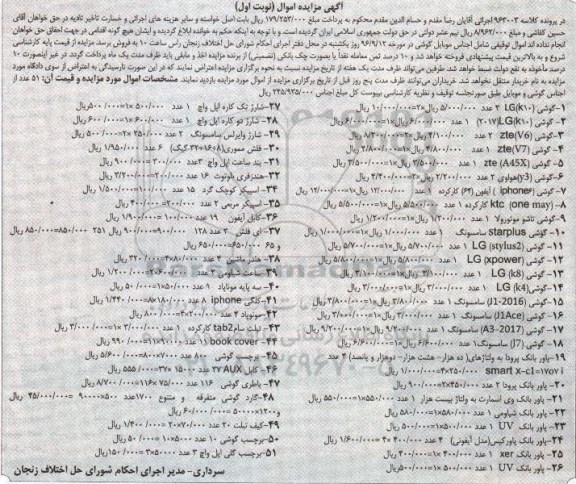 آگهی مزایده اموال (نوبت اول)
در پرونده کلاسه ۹۶۲۰۰۳ اجرائی آقایان رضا مقدم و حسام الدین مقدم محکوم به پرداخت مبلغ ۱۷۹/۲۵۳/۰۰۰ ریال بابت اصل خواسته و سایر هزینه های اجرائی و خسارت تاخیر تادیه در حق خواهان آقای
حسین کفاشی و مبلغ ۸/۹۶۲/۰۰۰ ریال نیم عشر دولتی در حق دولت جمهوری اسلامی ایران گردیده است. و با توجه به اینکه محکم به خوانده ابلاغ گردیده و ایشان هیچ گونه اقدامی در جهت احقاق حق خواهان
انجام نداده اند اموال توقیفی شامل اجناس موبایل گوشی در مورخه ۹۶/۹/۱۲ روز یکشنبه در محل دفتر اجرای احکام شورای حل اختلاف زنجان راس ساعت ۱۰ به فروش برسد. مزایده از قیمت پایه کارشناسی
شروع و به بالاترین قیمت پیشنهادی فروخته خواهد شد و ۱۰ درصد ثمن معامله نقداً یا بصورت چک بانکی (تضمینی) از برنده مزایده اخذ و مابقی باید ظرف مدت یک ماه پرداخت گردد. در غیر اینصورت ۱۰
درصد ماخوذه به نفع دولت ضبط خواهد شد. طرفین می‌تواند ظرف مدت یک هفته از تاریخ مزایده نسبت به نحوه برگزاری مزایده اعتراض نمایند که در این صورت تارسیدگی به اعتراض از سوی دادگاه مورد
مزایده به نام خریدار منتقل نخواهد شد. خریداران می‌توانند ظرف مدت پنج روز قبل از تاریخ برگزاری مزایده از اموال مورد مزایده بازدید نمایند. مشخصات اموال مورد مزایده و قیمت آن: ۵۱ عدد از
اجناس گوشی و موبایل طبق صورتجلسه توقیف و نظریه کارشناسی بپیوست کل اجناس مبلغ ۲۴۵/۹۲۵/۰۰۰ ریال
۱-گوشی LG(k10) ۲ عدد ۵/۰۰۰/۰۰۰ ریال×۲=۱۰/۰۰۰/۰۰۰ ریال
۲-گوشی LG(k10)(۲۰۱۷) ۱ عدد ۶/۰۰۰/۰۰۰ ریال×۱=۶/۰۰۰/۰۰۰ ریال
۳-گوشی zte(V6) ۲ عدد ۴/۱۰۰/۰۰۰ ریال×۲=۸/۲۰۰/۰۰۰ ریال
۴-گوشی zte(V7) ۱ عدد ۴/۸۰۰/۰۰۰ ریال×۱=۴/۸۰۰/۰۰۰ ریال
۵-گوشی zte (A45X) ۱ عدد ۳/۵۰۰/۰۰۰ ریال×۱=۳/۵۰۰/۰۰۰ ریال
۶-گوشی (y3)هوآوی ۲ عدد ۲/۲۰۰/۰۰۰ ریال×۲=۴/۴۰۰/۰۰۰ ریال
۷-گوشی (iphone۶) آیفون (۶۴) کارکرده ۱ عدد ۱۲/۰۰۰/۰۰۰ ریال×۱=۱۲/۰۰۰/۰۰۰ ریال
۸-گوشی ktc (one may) کارکرده ۱ عدد ۵/۵۰۰/۰۰۰ ریال×۱=۵/۵۰۰/۰۰۰ ریال
۹-گوشی تاشو موتورولا ۱ عدد ۱/۲۰۰/۰۰۰ ریال×۱=۱/۲۰۰/۰۰۰ ریال
۱۰-گوشی starplus سامسونگ ۱ عدد ۱/۰۰۰/۰۰۰ ریال×۱=۱/۰۰۰/۰۰۰ ریال
۱۱-گوشی LG (stylus2) ۱ عدد ۵/۷۰۰/۰۰۰ ریال×۱=۵/۷۰۰/۰۰۰ ریال
۱۲-گوشی LG (xpower) ۱ عدد
۱۳-گوشی LG (k8) ۱ عدد
۱۴-گوشی LG (k4) ۱ عدد
۱۵-گوشی (J1-2016) سامسونگ ۱ عدد ۳/۸۰۰/۰۰۰ ریال×۱=۳/۸۰۰/۰۰۰ ریال
۱۶-گوشی (J1Ace) سامسونگ ۱ عدد
۱۷-گوشی (A3-2017) سامسونگ ۱ عدد ۹/۲۰۰/۰۰۰ ریال×۱=۹/۲۰۰/۰۰۰ ریال
۱۸-گوشی (J7) سامسونگ۱ عدد ۶/۶۰۰/۰۰۰ ریال×۱=۶/۶۰۰/۰۰۰ ریال
۱۹-پاور بانک پرودا به ولتاژهای( ده هزار- هشت هزار- دوهزار و پانصد) ۴ عدد
۲۰-پاور بانک پرودا ۲ عدد ۴۵۰/۰۰۰×۲=۹۰۰/۰۰۰ ریال
۲۱-پاور بانک وی اسمارت به ولتاژ بیست هزار ۱ عدد ۵۵۰/۰۰۰×۱=۵۵۰/۰۰۰ ریال
۲۲-پاور بانک شیاومی ۱ عدد ۵۸۰/۰۰۰×۱=۵۸۰/۰۰۰ ریال
۲۳-پاور بانک UV ۱ عدد
۲۴-پاور بانک پاورکیس(مدل آیفونی) ۴ عدد ۴۰۰/۰۰۰×۴=۱/۶۰۰/۰۰۰ ریال
۲۵-پاور بانک xer ۱ عدد ۴۰۰/۰۰۰×۱=۴۰۰/۰۰۰ ریال
۲۶-پاور بانک UV ۱ عدد ۵۰۰/۰۰۰×۱=۵۰۰/۰۰۰ریال
۲۷-شارژ تک کاره اپل واچ ۱ عدد ۵۰۰/۰۰۰×۱=۵۰۰/۰۰۰ریال
۲۸-شارژ دو کاره اپل واچ ۱ عدد ۶۰۰/۰۰۰×۱=۶۰۰/۰۰۰ ریال
۲۹-شارژ وایرلس سامسونگ ۲ عدد ۲۵۰/۰۰۰×۲=۵۰۰/۰۰۰ ریال
۳۰-فلش مموری(۸و۱۶و۳۲گیگ) ۶ عدد ۱/۹۵۰/۰۰۰ ریال
۳۱-بند ساعت اپل واچ ۳ عدد ۳۰۰/۰۰۰×۳=۹۰۰/۰۰۰ ریال
۳۲-هندزفری بلوتوث ۱۶ عدد ۲۰۰/۰۰۰×۱۶=۳/۲۰۰/۰۰۰ ریال
۳۴-اسپیکر کوچک گرد ۱۵ عدد ۱۰۰/۰۰۰×۱۵=۱/۵۰۰/۰۰۰ ریال
۳۵-اسپیکر مربی ۲ عدد ۲۰۰/۰۰۰×۲=۴۰۰/۰۰۰ ریال
۳۶-کابل آیفون ۱۹ عدد ۱۰۰/۰۰۰×۱۹=۱/۹۰۰/۰۰۰ ریال
و ۶۵ ۶۵۰/۰۰۰=۶۵۰/۰۰۰ ریال
۳۸-هندز ماشین ۴ عدد ۸۰/۰۰۰×۴=۳۲۰/۰۰۰ ریال
۴۲-مونوپاد ۴ عدد ۲۰۰/۰۰۰×۴=۸۰۰/۰۰۰ ریال
۴۳-تبلت سامtab2 کارکرده ۱ عدد ۳/۰۰۰/۰۰۰×۱=۳/۰۰۰/۰۰۰ ریال
۴۴-book cover ۱۱ عدد ۹۰/۰۰۰×۱۱=۹۹۰/۰۰۰ ریال
۴۵-برچسب گوشی ۸۰ عدد ۷۰/۰۰۰×۸۰=۵/۶۰۰/۰۰۰ ریال
۴۶-کابل AUX ۳۷ عدد ۱۵/۰۰۰×۳۷=۵۵۵/۰۰۰ ریال
۴۷-باطری گوشی ۱۱۶ عدد ۷۵/۰۰۰×۱۱۶=۸/۷۰۰/۰۰۰ ریال
۴۹-کیف تبلت ۲۰ عدد ۷۰/۰۰۰×۲۰=۱/۴۰۰/۰۰۰ ریال
۵۰-برچسب گوشی ۱۰ عدد ۵۰۰۰×۱۰=۵۰/۰۰۰ ریال
۵۱-گلس اپل واچ ۳ عدد ۵۰/۰۰۰×۳=۱۵۰/۰۰۰ریال
سرداری- مدیر اجرای احکام شورای حل اختلاف زنجان